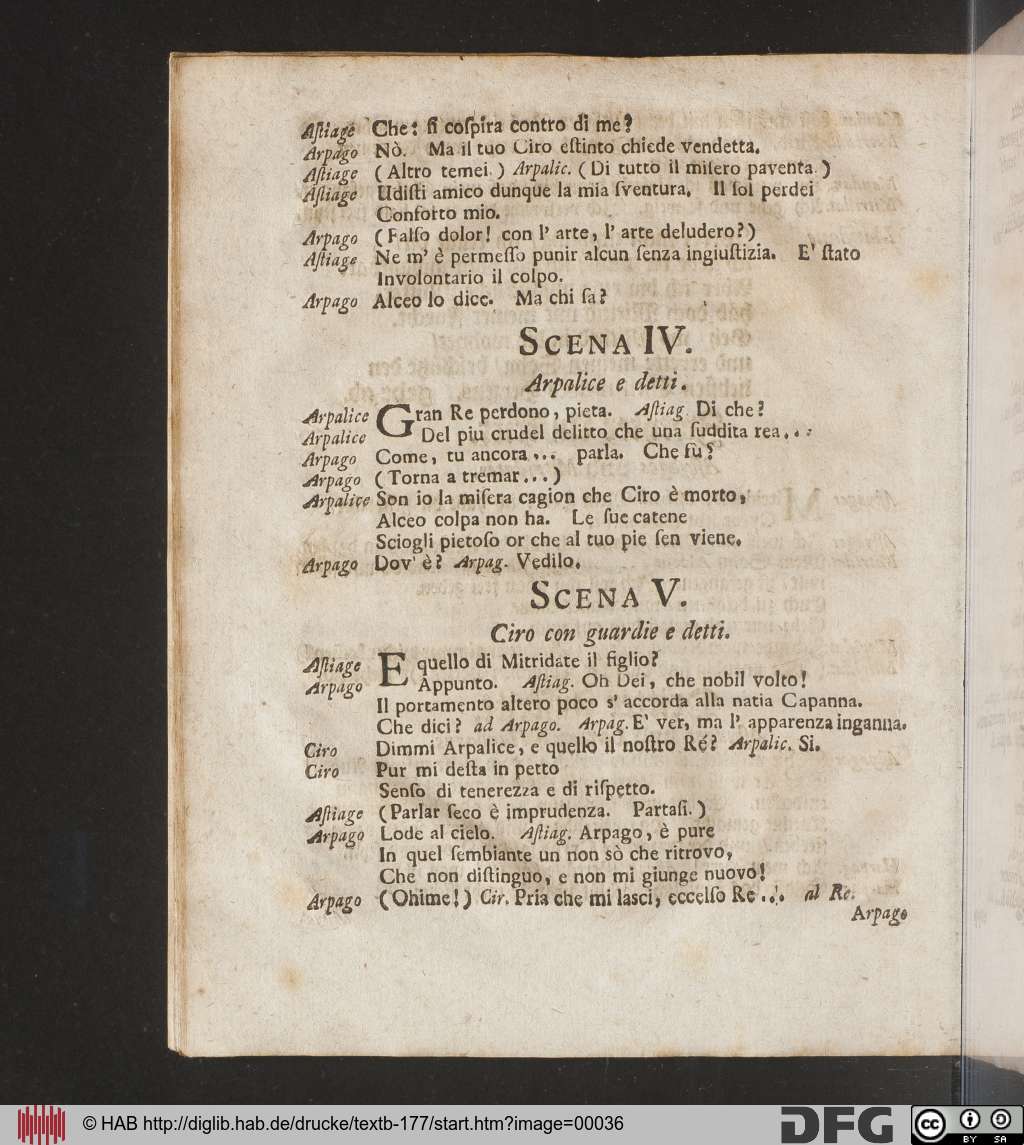 Aſtiage Che: ſi coſpira contro di me?
Arpago Nò. Ma il tuo Ciro eſtinto chiede vendetta.
Aſtiage (Altro temei.) Arpalic. (Di tutto il miſero paventa.)
Aſtiage Udiſti amico dunque la mia ſventura. Il ſol perdei
Conforto mio.
Arpago (Falſo dolor! con l' arte, l' arte deludero?)
Aſtiage Ne m' è permeſſo punir alcun ſenza ingiuſtizia. E' ſtato
Involontario il colpo.
Arpago Alceo lo dice. Ma chi ſa?
SCENA IV.
Arpalice e detti.
Arpalice Gran Re perdono, pieta. Aſtiag. Di che?
Arpalice Del piu crudel delitto che una ſuddita rea...
Arpago Come, tu ancora... parla. Che fu?
Arpago (Torna a tremar...)
Arpalice Son io la miſera cagion che Ciro è morto,
Alceo colpa non ha. Le ſue catene
Sciogli pietoſo or che al tuo pie ſen viene.
Arpago Dov' è? Arpag. Vedilo.
SCENA V.
Ciro con guardie e detti.
Aſtiage E quello di Mitridate il figlio?
Arpago Appunto. Aſtiag. Oh Dei, che nobil volto!
Il portamento altero poco s' accorda alla natia Capanna.
Che dici? ad Arpago. Arpag. E' ver, ma l' apparenza inganna.
Ciro Dimmi Arpalice, e quello il noſtro Ré? Arpalic. Si.
Ciro Pur mi deſta in petto
Senſo di tenerezza e di riſpetto.
Aſtiage (Parlar ſeco è imprudenza. Partaſi.)
Arpago Lode al cielo. Aſtiag. Arpago, è pure
In quel ſembiante un non sò che ritrovo,
Che non diſtinguo, e non mi giunge nuovo!
Arpago (Ohime!) Cir. Pria che mi lasci, eccelſo Re... al Re.
Arpago
© HAB http://diglib.hab.de/drucke/textb-177/start.htm?image=00036
DFG
cc BY SA